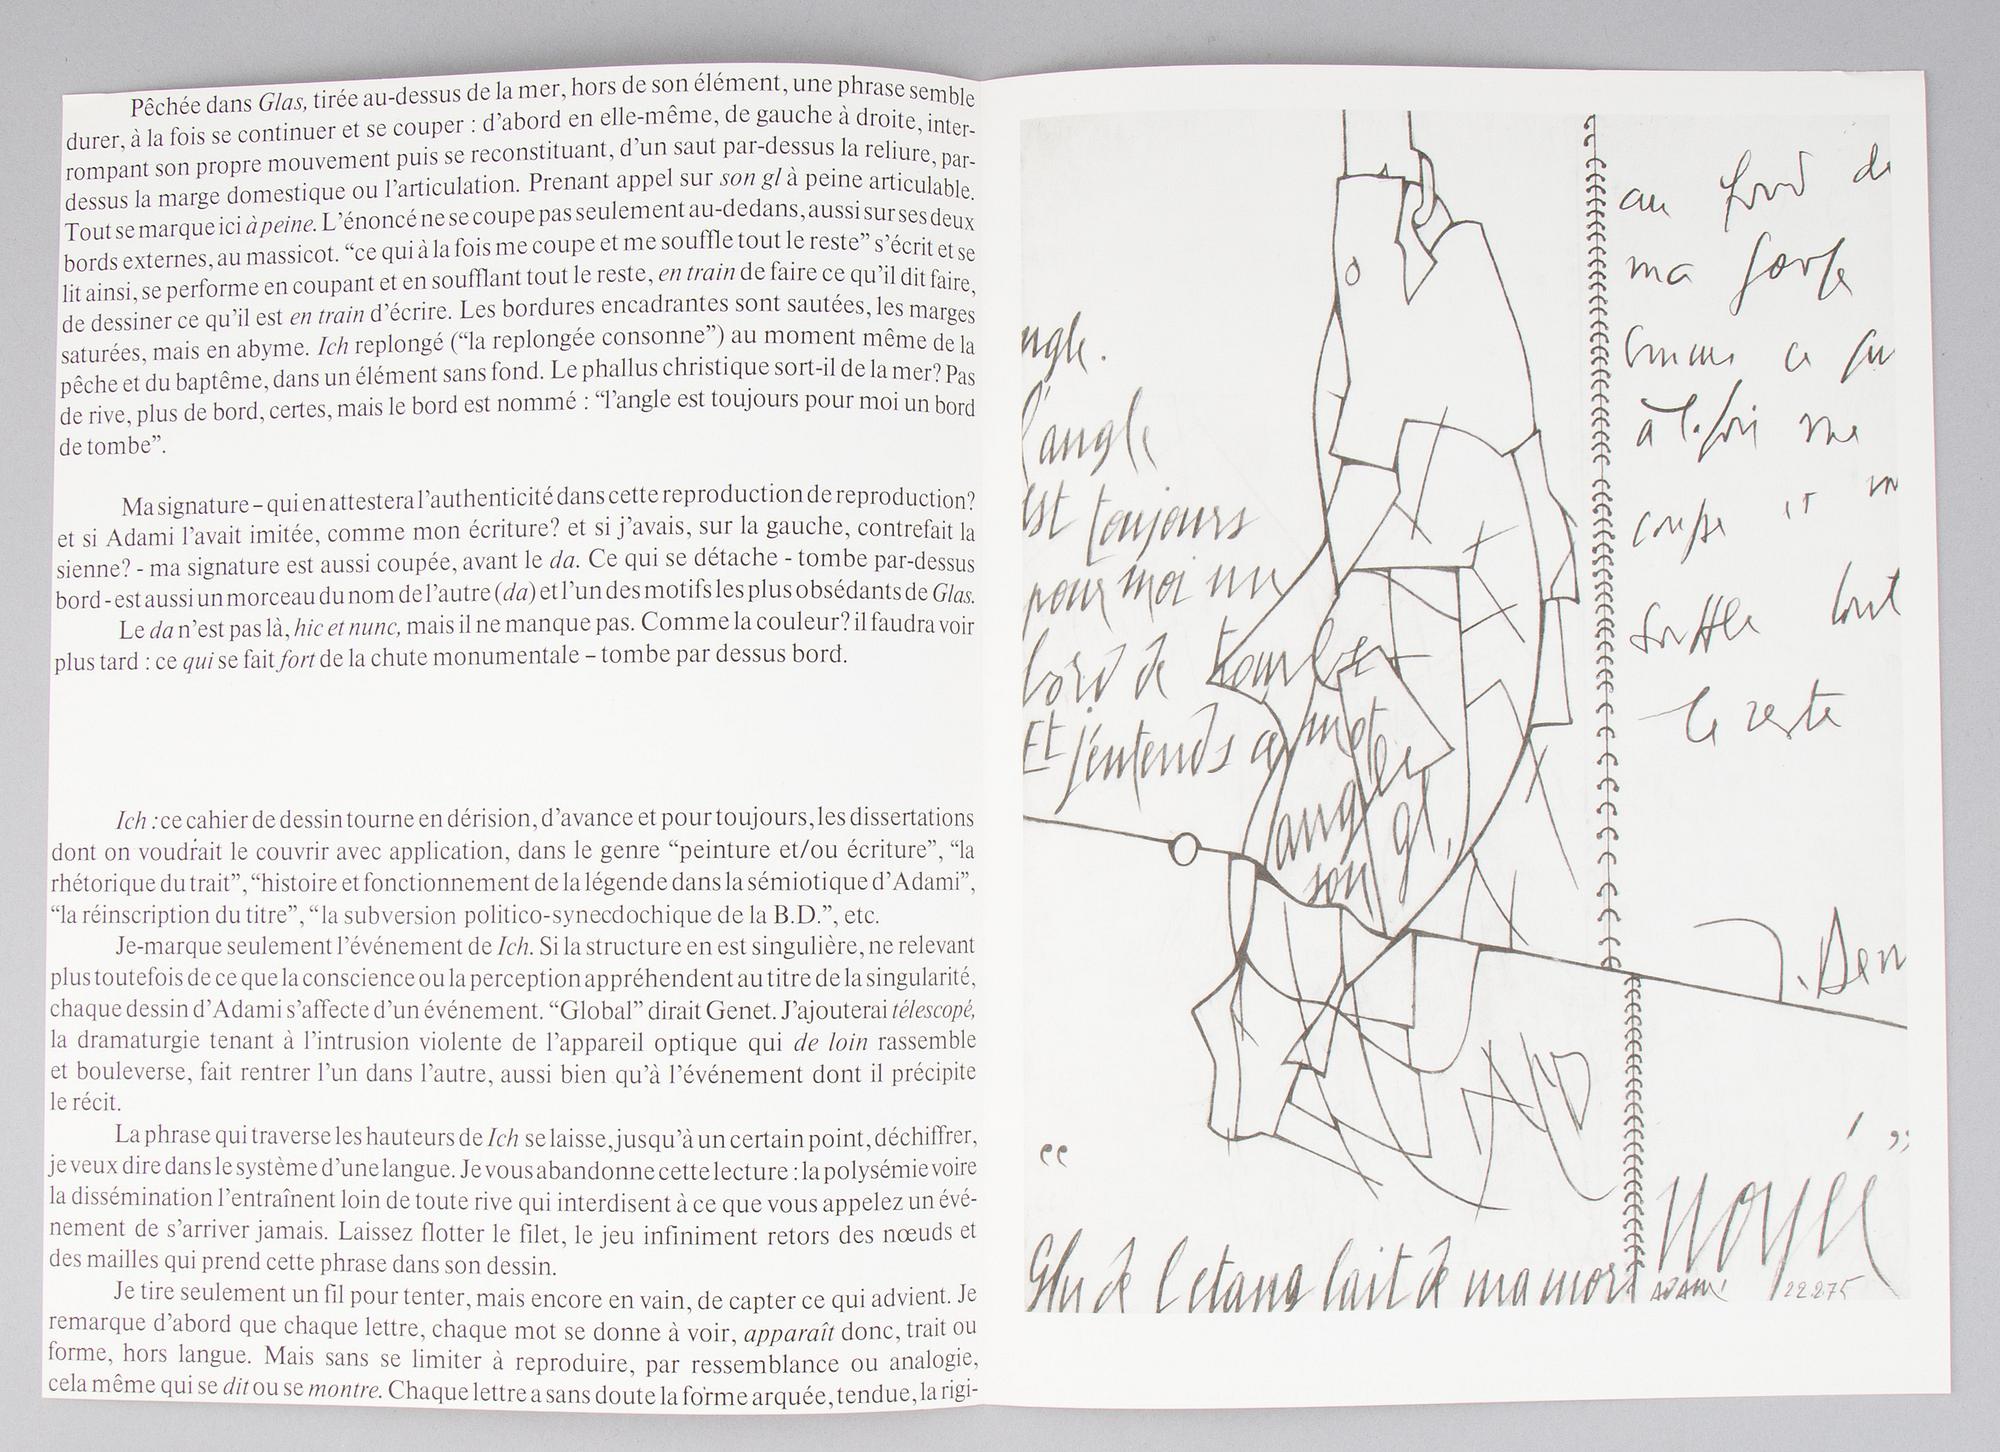 Pêchée dans Glas, tirée au-dessus de la mer, hors de son élément, une phrase semble
durer, à la fois se continuer et se couper : d’abord en elle-même, de gauche à droite, inter-
rompant son propre mouvement puis se reconstituant, d’un saut par-dessus la reliure, par-
dessus la marge domestique ou l’articulation. Prenant appel sur son gl à peine articulable.
Tout se marque ici à peine. L’énoncé ne se coupe pas seulement au-dedans, aussi sur ses deux
bords externes, au massicot. “ce qui à la fois me coupe et me souffle tout le reste” s’écrit et se
lit ainsi, se performe en coupant et en soufflant tout le reste, en train de faire ce qu’il dit faire,
de dessiner ce qu’il est en train d’écrire. Les bordures encadrantes sont sautées, les marges
saturées, mais en abyme. Ich replongé (“la replongée consonne”) au moment même de la
pêche et du baptême, dans un élément sans fond. Le phallus christique sort-il de la mer? Pas
de rive, plus de bord, certes, mais le bord est nommé : “l’angle est toujours pour moi un bord
de tombe”.
Ma signature – qui en attestera l’authenticité dans cette reproduction de reproduction?
et si Adami l’avait imitée, comme mon écriture? et si j’avais, sur la gauche, contrefait la
sienne? - ma signature est aussi coupée, avant le da. Ce qui se détache - tombe par-dessus
bord - est aussi un morceau du nom de l’autre (da) et l’un des motifs les plus obsédants de Glas.
Le da n’est pas là, hic et nunc, mais il ne manque pas. Comme la couleur? il faudra voir
plus tard : ce qui se fait fort de la chute monumentale – tombe par dessus bord.
Ich : ce cahier de dessin tourne en dérision, d’avance et pour toujours, les dissertations
dont on voudrait le couvrir avec application, dans le genre “peinture et/ou écriture”, “la
rhétorique du trait”, “histoire et fonctionnement de la légende dans la sémiotique d’Adami”,
“la réinscription du titre”, “la subversion politico-synecdochique de la B.D.”, etc.
Je-marque seulement l’événement de Ich. Si la structure en est singulière, ne relevant
plus toutefois de ce que la conscience ou la perception appréhendent au titre de la singularité,
chaque dessin d’Adami s’affecte d’un événement. “Global” dirait Genet. J’ajouterai télescopé,
la dramaturgie tenant à l’intrusion violente de l’appareil optique qui de loin rassemble
et bouleverse, fait rentrer l’un dans l’autre, aussi bien qu’à l’événement dont il précipite
le récit.
La phrase qui traverse les hauteurs de Ich se laisse, jusqu’à un certain point, déchiffrer,
je veux dire dans le système d’une langue. Je vous abandonne cette lecture : la polysémie voire
la dissémination l’entraînent loin de toute rive qui interdisent à ce que vous appelez un évé-
nement de s’arriver jamais. Laissez flotter le filet, le jeu infiniment retors des nœuds et
des mailles qui prend cette phrase dans son dessin.
Je tire seulement un fil pour tenter, mais encore en vain, de capter ce qui advient. Je
remarque d’abord que chaque lettre, chaque mot se donne à voir, apparaît donc, trait ou
forme, hors langue. Mais sans se limiter à reproduire, par ressemblance ou analogie,
cela même qui se dit ou se montre. Chaque lettre a sans doute la forme arquée, tendue, la rigi-
ngle.
l’angle
est toujours
pour moi un
bord de tombe
Et j’entends ce mot
angle
gl,
son
au fond de
ma gorge
comme ce qui
à la fois me
coupe et m
souffle tout
le reste
J. Derr
“ ”
noyée
Glu de l’etang lait de ma mort
ADAMI 22.2.75